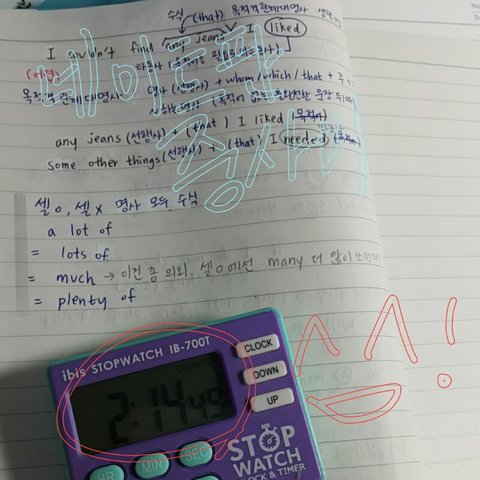 수식 (that) 목적격관계대명사 생략
I couldn't find any jeans I liked
타동사 (목적어를 필요로 하는 동사)
목적격 관계대명사 명사 (선행사) + whom/which/that + 주 +
any jeans (선행사) + (that) I liked (목적어)
some other things (선행사) + (that) I needed (목적어)
네이트판
증사
셀o, 셀x 명사 모두 수식
a lot of
= lots of
= much → 이건 좀 의외. 셀o에선 many 더 많이 쓰던데
= plenty of
^^!
ibis STOPWATCH IB-700T
COUNT
2:14 45
CLOCK
DOWN
UP
HR
MIN
SEC
STOP
WATCH
CLOCK & TIMER